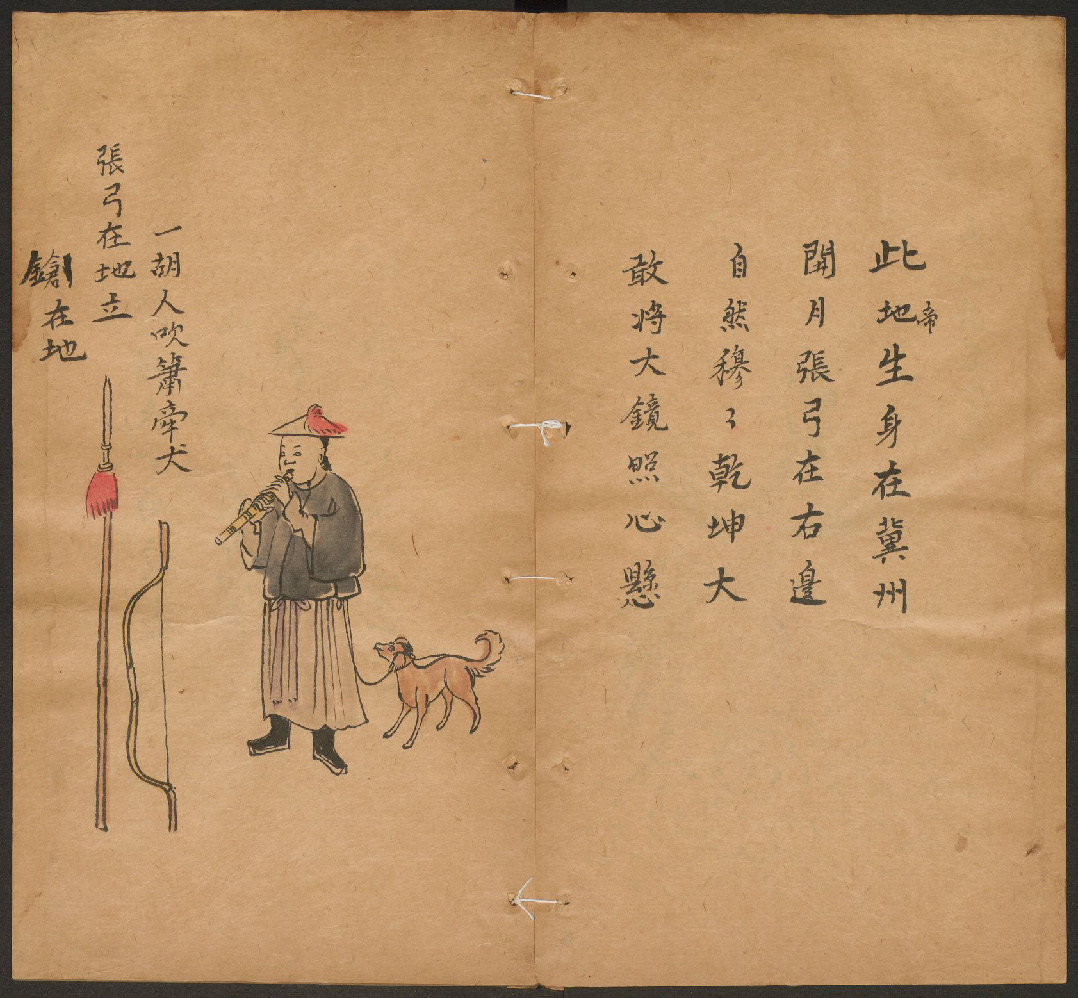 此地生身在冀州
帝
開月張弓在右邊
自然穆〻乾坤大
敢将大鏡照心懸
一胡人吹簫牽犬
張弓在地立
鎗在地